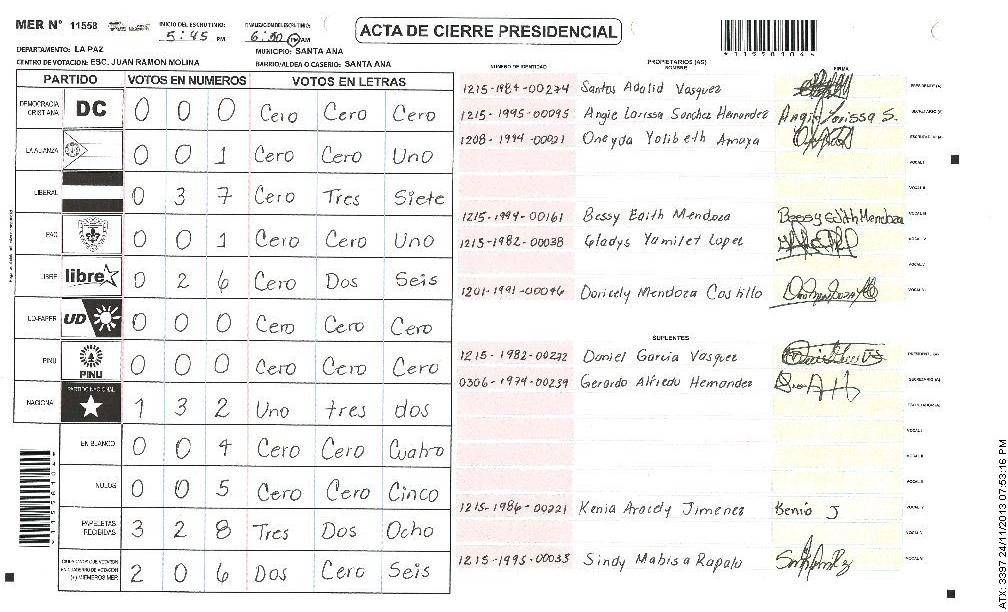 MER N° 11558
INICIO DEL ESCRUTINIO:
5:45 PM
FINALIZACION DEL ESCRUTINIO:
6:50 PM AM
ACTA DE CIERRE PRESIDENCIAL
115581064
DEPARTAMENTO: LA PAZ
MUNICIPIO: SANTA ANA
CENTRO DE VOTACION: ESC. JUAN RAMON MOLINA
BARRIO/ALDEA O CASERIO: SANTA ANA
PARTIDO VOTOS EN NUMEROS VOTOS EN LETRAS
DEMOCRACIA CRISTIANA DC 0 0 0 Cero Cero Cero
LA ALIANZA 0 0 1 Cero Cero Uno
LIBERAL 0 3 7 Cero Tres Siete
PAC 0 0 1 Cero Cero Uno
LIBRE libre 0 2 6 Cero Dos Seis
UD-FAPER UD 0 0 0 Cero Cero Cero
PINU PINU 0 0 0 Cero Cero Cero
NACIONAL PARTIDO NACIONAL 1 3 2 Uno tres dos
EN BLANCO 0 0 4 Cero Cero Cuatro
NULOS 0 0 5 Cero Cero Cinco
PAPELETAS RECIBIDAS 3 2 8 Tres Dos Ocho
CIUDADANOS QUE VOTARON EN CUADERNO DE VOTACION (+) MIEMBROS MER 2 0 6 Dos Cero Seis
NUMERO DE IDENTIDAD PROPIETARIOS (AS) NOMBRE FIRMA
1215-1984-00274 Santos Adalid Vasquez PRESIDENTE (A)
1215-1995-00095 Angie Larissa Sanchez Hernandez Angie Larissa S. SECRETARIO (A)
1208-1994-00021 Oneyda Yolibeth Amaya ESCRUTADOR (A)
VOCAL I
VOCAL II
1215-1994-00161 Bessy Edith Mendoza Bessy Edith Mendoza VOCAL III
1215-1982-00038 Gladys Yamilet Lopez VOCAL IV
VOCAL V
1201-1991-00046 Doricely Mendoza Castillo VOCAL VI
SUPLENTES
1215-1982-00272 Daniel Garcia Vasquez PRESIDENTE (A)
0306-1974-00239 Gerardo Alfredo Hernandez SECRETARIO (A)
ESCRUTADOR (A)
VOCAL I
VOCAL II
VOCAL III
1215-1986-00221 Kenia Aracely Jimenez Kenia J VOCAL IV
VOCAL V
1215-1995-00033 Sindy Mabisa Rapalo VOCAL VI
ATX: 3397 24/11/2013 07:53:16 PM